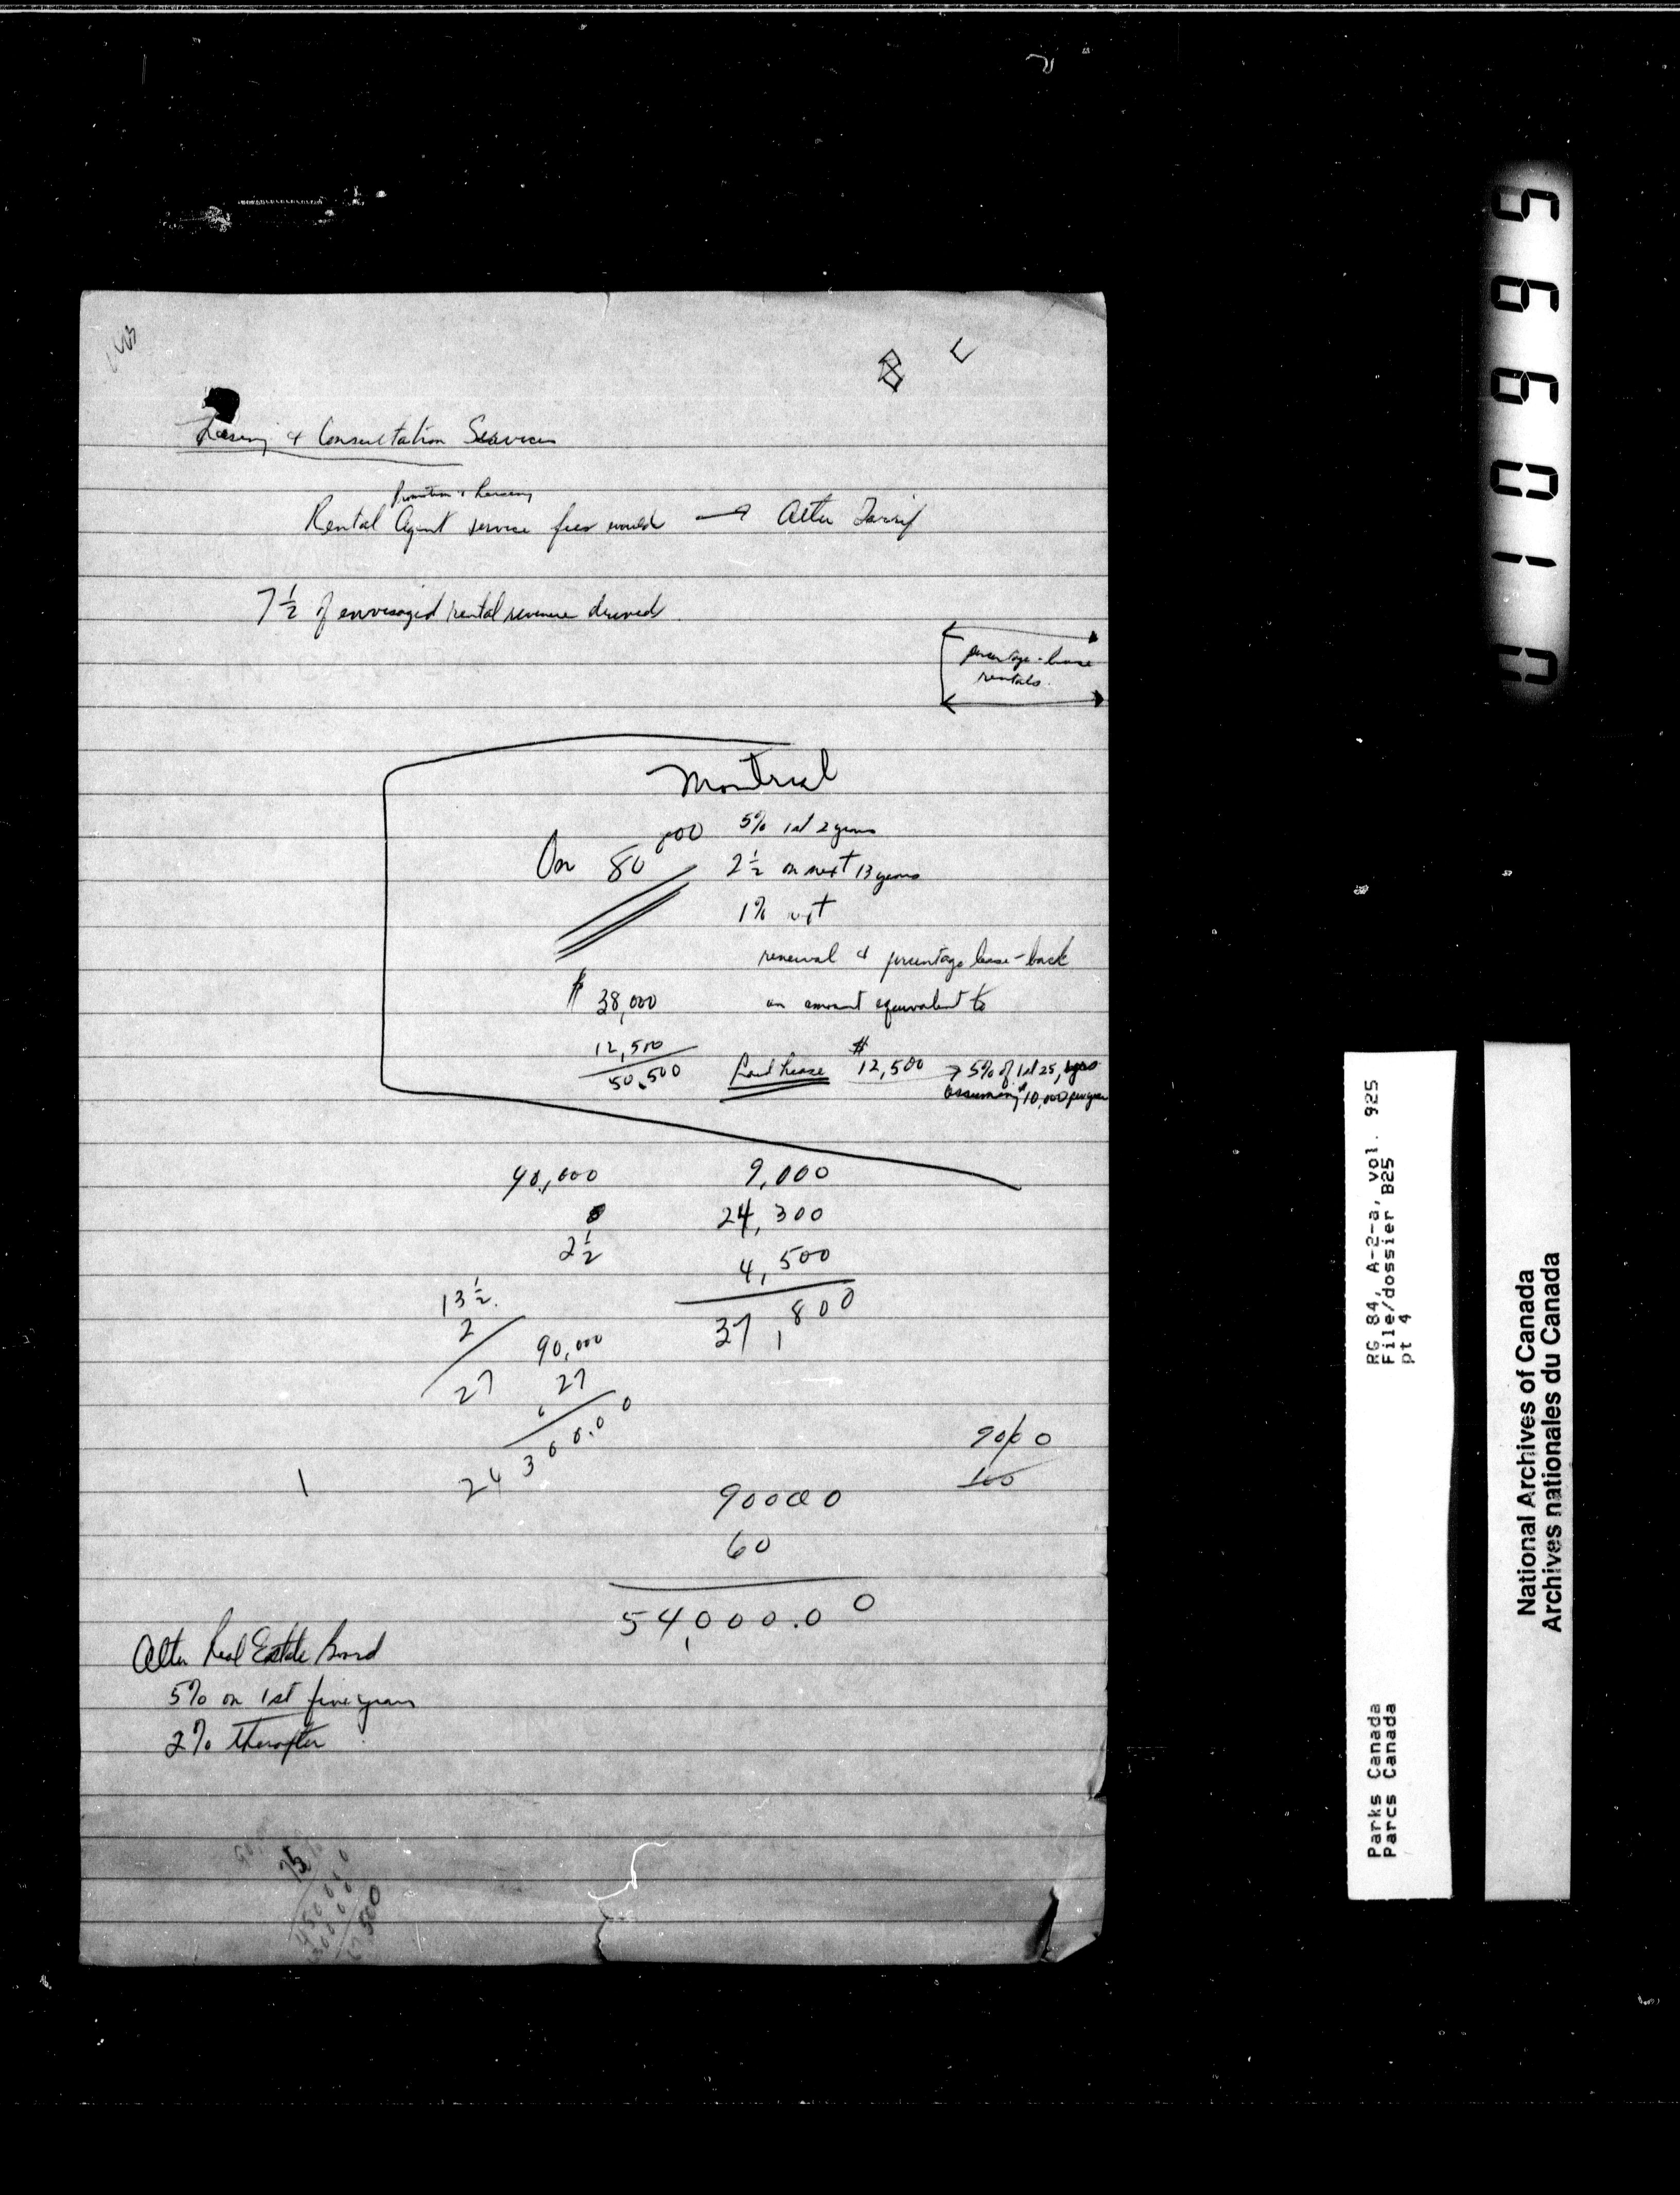 Leasing & Consultation Services
Promotion & Leasing
Rental Agent service fees would → Alta Tariff
7 1/2 of envisaged rental revenue derived.
percentage-lease
rentals.
Montreal
On 80,000 5% 1st 2 years
2 1/2 on next 13 years
1%
renewal & percentage lease-back
$ 38,000 an amount equivalent to
12,500
50,500
Lease $12,500 → 5% of 1st 25, yrs
assuming $10,000 per year
90,000 9,000
24,300
2 1/2
4,500
13 1/2.
37,800
2
90,000
27 27
24 300.00
9000
100
1
90000
60
54,000.00
Alta Real Estate Board
5% on 1st five years
2% thereafter
75
500
010665
RG 84, A-2-a, vol. 925
File/dossier B25
pt 4
Parks Canada
Parcs Canada
National Archives of Canada
Archives nationales du Canada